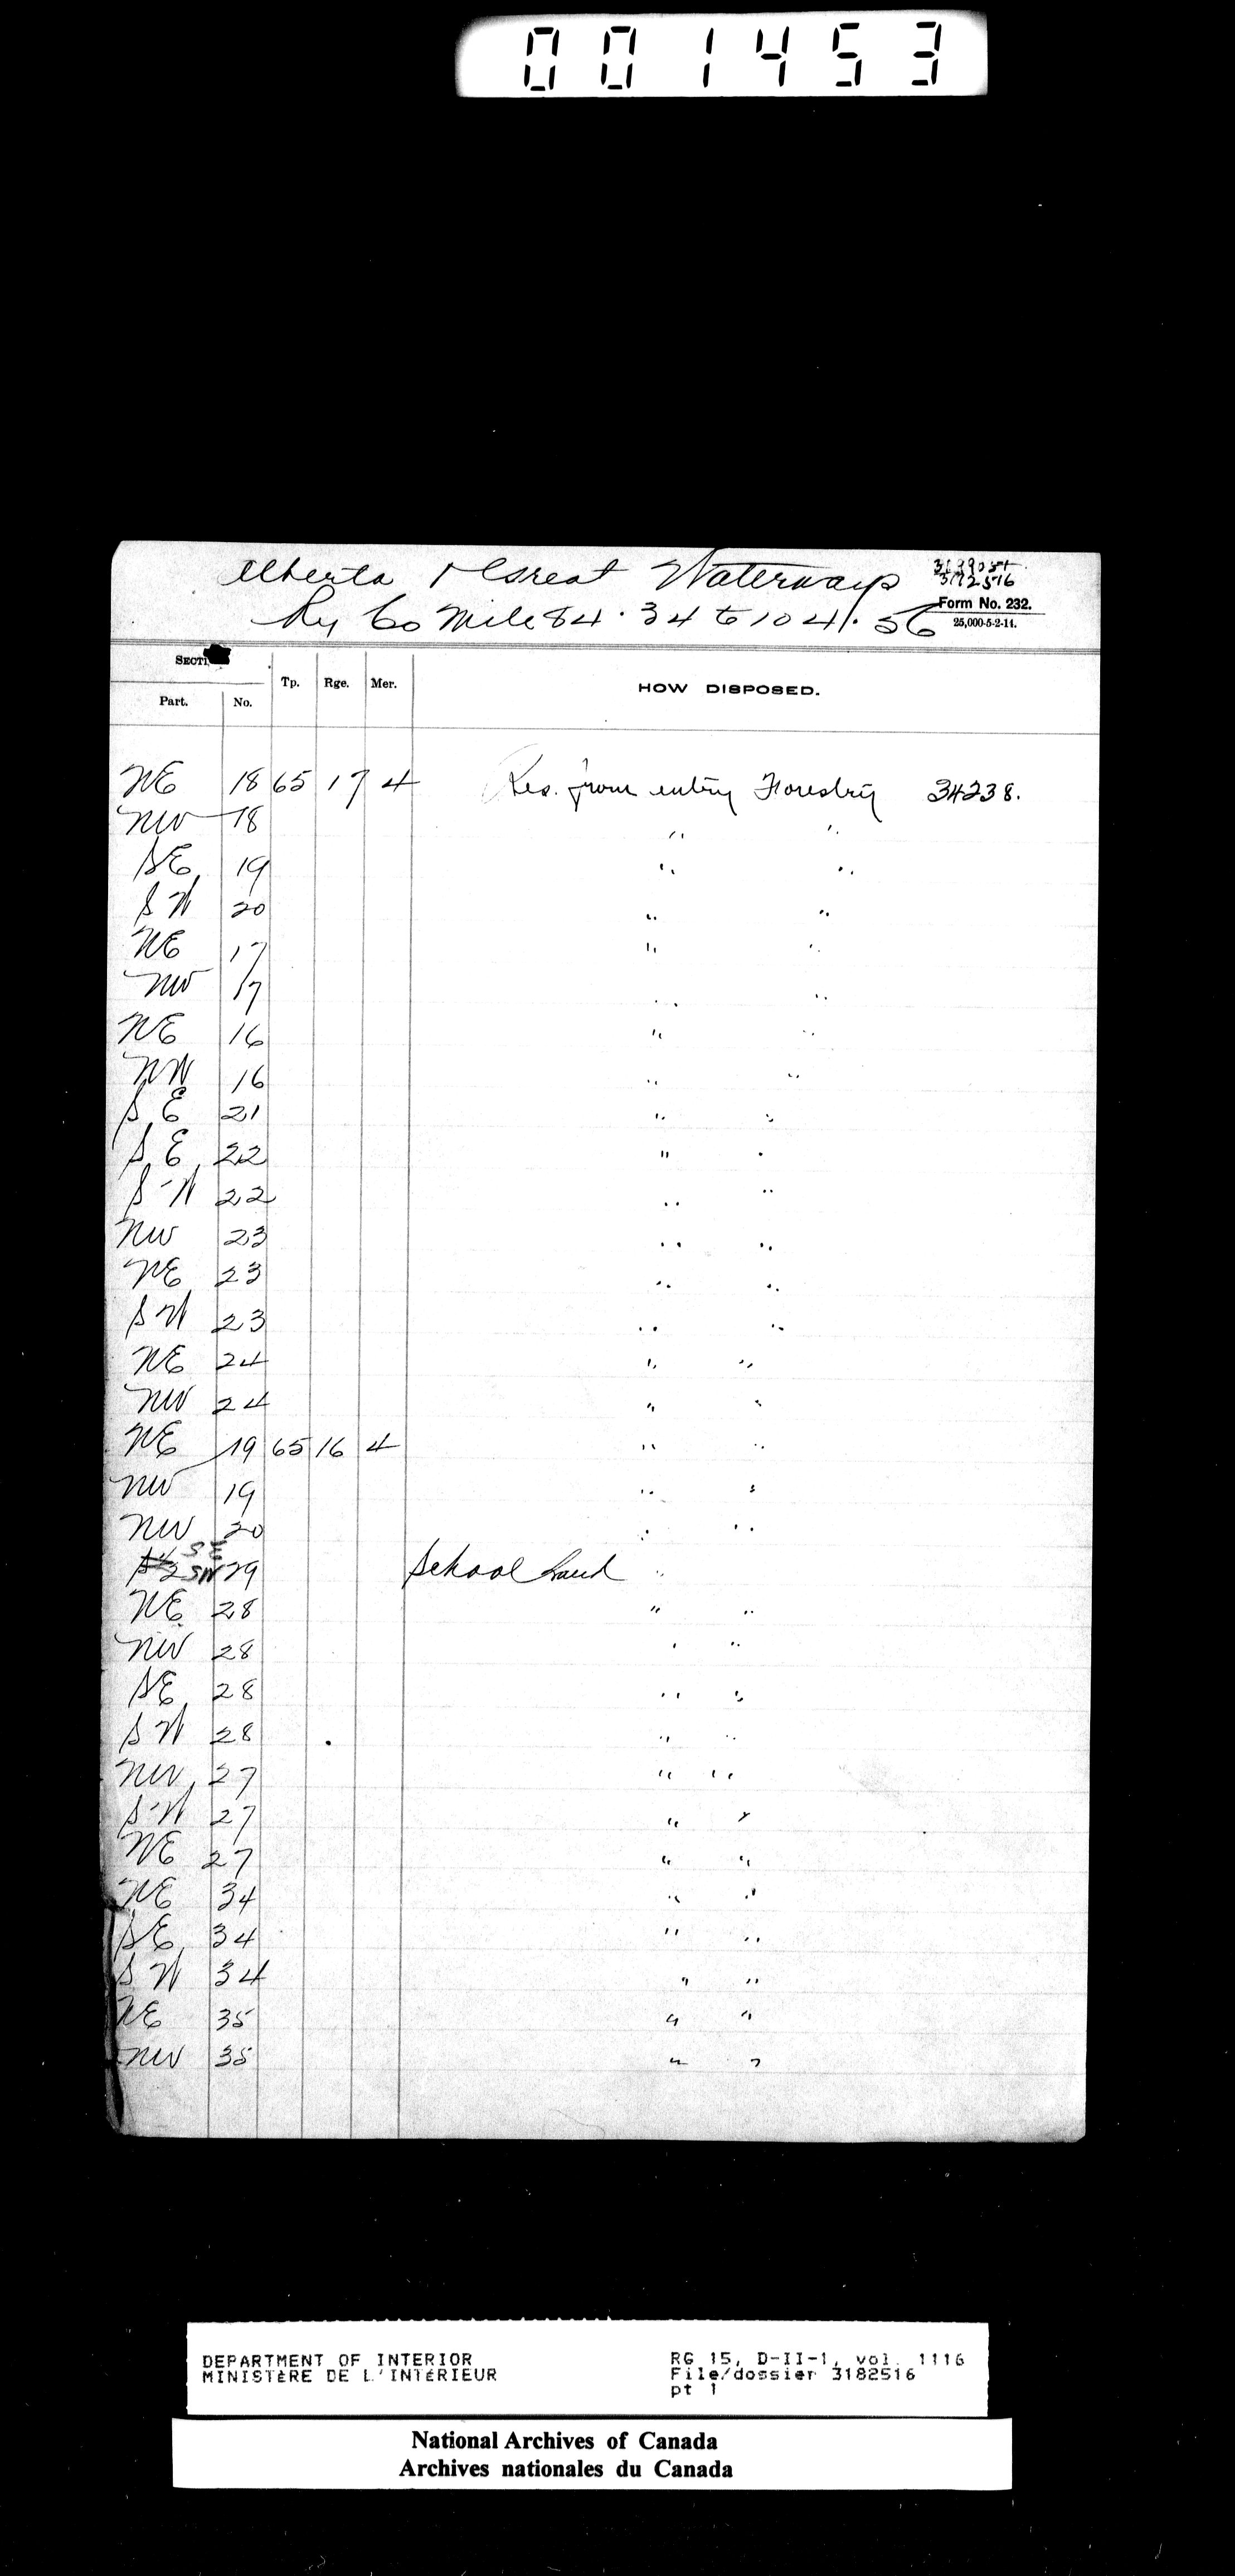 001453
Alberta & Great Waterways
3182516
Ry Co Mile 84.34 to 104.56
Form No. 232.
25,000-5-2-14.
SECTI
Part. No. Tp. Rge. Mer. HOW DISPOSED.
NE 18 65 17 4 Res. from entry Forestry 34238.
NW 18 " "
SE 19 " "
SW 20 " "
NE 17 " "
NW 17 " "
NE 16 " "
NW 16 " "
SE 21 " "
SE 22 " "
SW 22 " "
NW 23 " "
NE 23 " "
SW 23 " "
NE 24 " "
NW 24 " "
NE 19 65 16 4 " "
NW 19 " "
NW 20 " "
SE
SW 29 School Land "
NE 28 " "
NW 28 " "
SE 28 " "
SW 28 " "
NW 27 " "
SW 27 " "
NE 27 " "
NE 34 " "
SE 34 " "
SW 34 " "
NE 35 " "
NW 35 " "
DEPARTMENT OF INTERIOR
MINISTÈRE DE L'INTÉRIEUR
RG 15, D-II-1, vol. 1116
File/dossier 3182516
pt 1
National Archives of Canada
Archives nationales du Canada